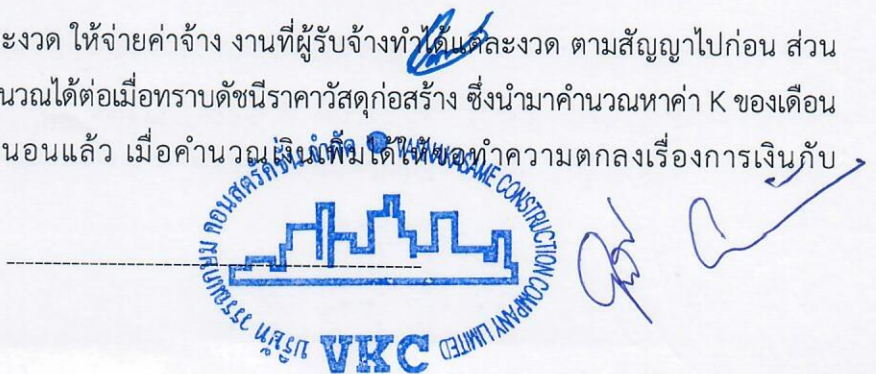 ะงวด ให้จ่ายค่าจ้าง งานที่ผู้รับจ้างทำได้แต่ละงวด ตามสัญญาไปก่อน ส่วน
นวณได้ต่อเมื่อทราบดัชนีราคาวัสดุก่อสร้าง ซึ่งนำมาคำนวณหาค่า K ของเดือน
นอนแล้ว เมื่อคำนวณเงินเพิ่มได้ให้ขอทำความตกลงเรื่องการเงินกับ
บริษัท วรรณเกษม คอนสตรัคชั่น จำกัด
CONSTRUCTION COMPANY LIMITED
VKC